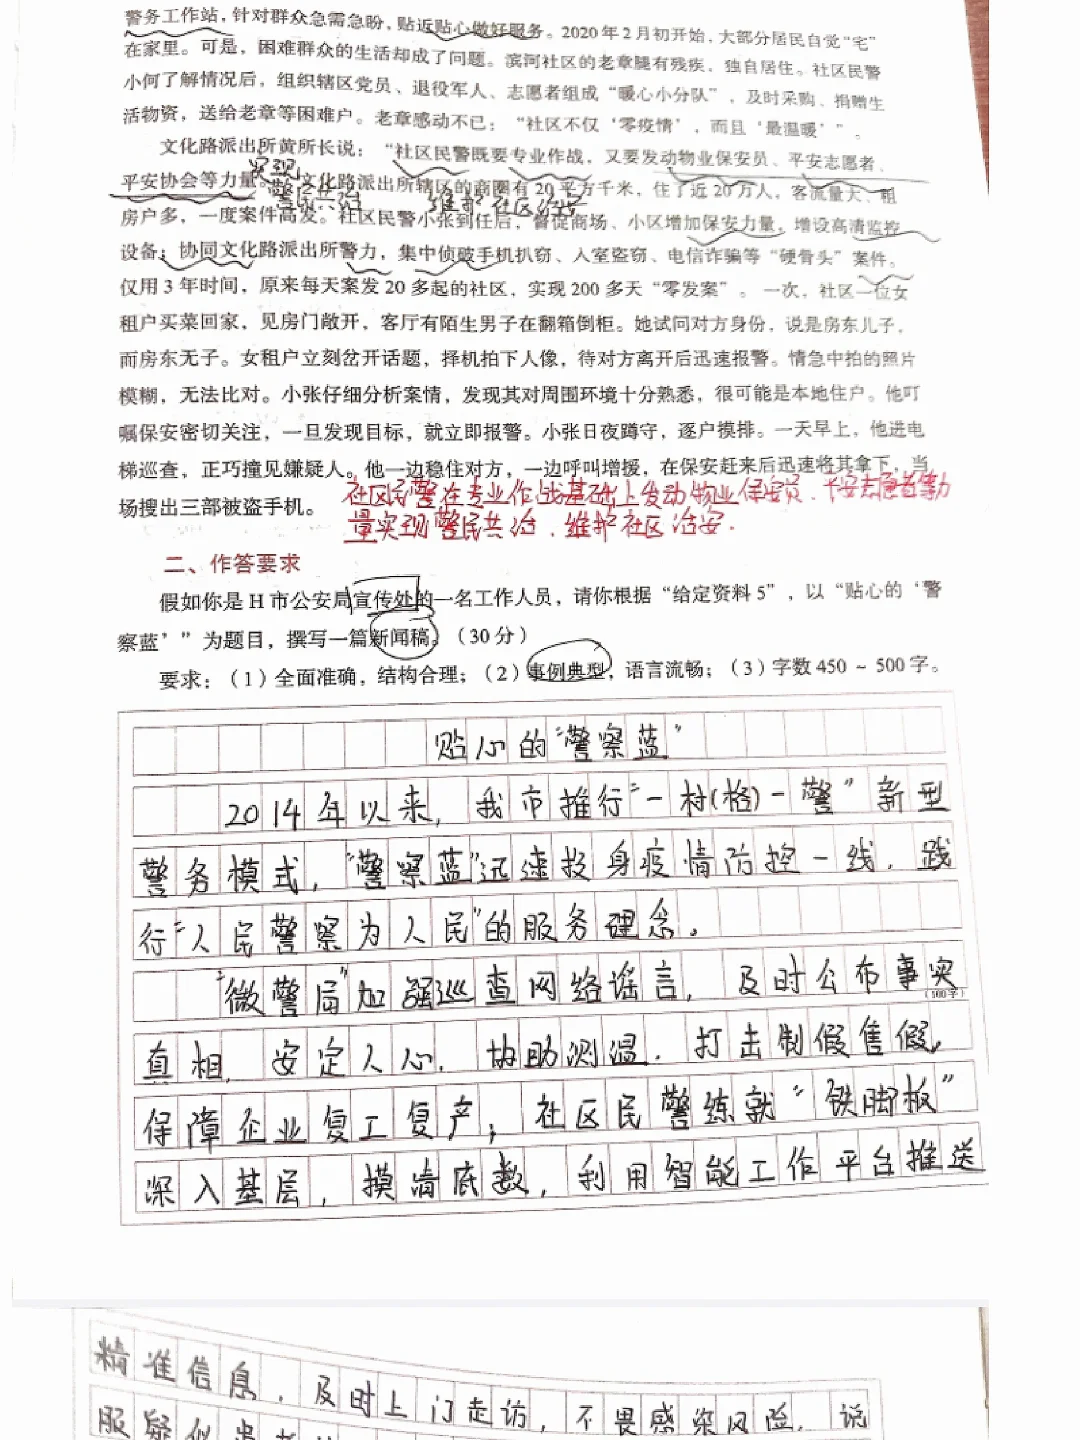 警务工作站，针对群众急需急盼，贴近贴心做好服务。2020年2月初开始，大部分居民自觉“宅”
在家里。可是，困难群众的生活却成了问题。滨河社区的老章腿有残疾，独自居住。社区民警
小何了解情况后，组织辖区党员、退役军人、志愿者组成“暖心小分队”，及时采购、捐赠生
活物资，送给老章等困难户。老章感动不已：“社区不仅‘零疫情’，而且‘最温暖’”。
文化路派出所黄所长说：“社区民警既要专业作战，又要发动物业保安员、平安志愿者、
实现
平安协会等力量。”文化路派出所辖区的商圈有20平方千米，住了近20万人，客流量大、租
警民共治 维护社区治安
房户多，一度案件高发。社区民警小张到任后，督促商场、小区增加保安力量，增设高清监控
设备；协同文化路派出所警力，集中侦破手机扒窃、入室盗窃、电信诈骗等“硬骨头”案件。
仅用3年时间，原来每天案发20多起的社区，实现200多天“零发案”。一次，社区一位女
租户买菜回家，见房门敞开，客厅有陌生男子在翻箱倒柜。她试问对方身份，说是房东儿子，
而房东无子。女租户立刻岔开话题，择机拍下人像，待对方离开后迅速报警。情急中拍的照片
模糊，无法比对。小张仔细分析案情，发现其对周围环境十分熟悉，很可能是本地住户。他叮
嘱保安密切关注，一旦发现目标，就立即报警。小张日夜蹲守，逐户摸排。一天早上，他进电
梯巡查，正巧撞见嫌疑人。他一边稳住对方，一边呼叫增援，在保安赶来后迅速将其拿下，当
场搜出三部被盗手机。
社区民警在专业作战基础上发动物业保安员、平安志愿者等力
量实现警民共治、维护社区治安.
二、作答要求
假如你是H市公安局宣传处的一名工作人员，请你根据“给定资料5”，以“贴心的‘警
察蓝’”为题目，撰写一篇新闻稿。（30分）
要求：（1）全面准确，结构合理；（2）事例典型，语言流畅；（3）字数450～500字。
贴心的“警察蓝”
2014年以来，我市推行“一村(格)一警”新型
警务模式，“警察蓝”迅速投身疫情防控一线，践
行“人民警察为人民”的服务理念。
“微警局”加强巡查网络谣言，及时公布事实
（100字）
真相，安定人心，协助测温，打击制假售假，
保障企业复工复产；社区民警练就“铁脚板”
深入基层，摸清底数，利用智能工作平台推送
精准信息，及时上门走访，不畏感染风险，说
服疑似患者